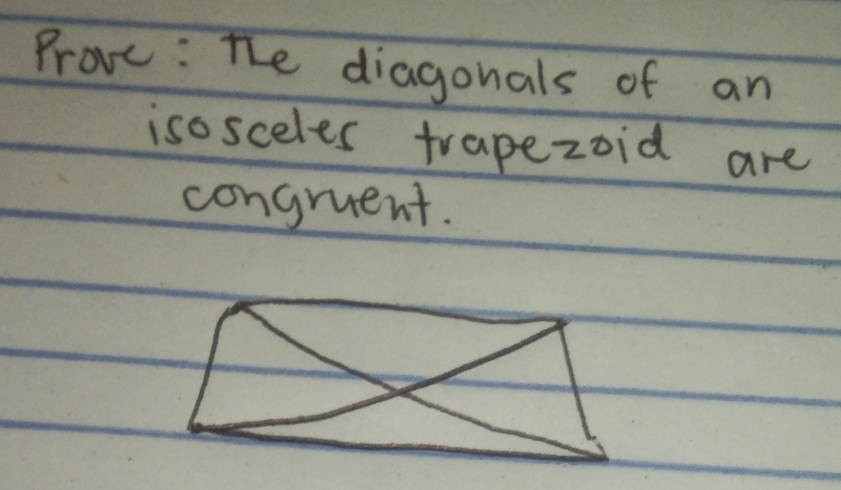 Prove: The diagonals of an
isosceles trapezoid are
congruent.